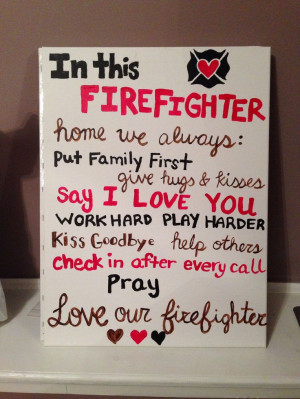 In this
FIREFIGHTER
home we always:
Put Family First
give hugs & kisses
say I LOVE YOU
WORK HARD PLAY HARDER
Kiss Goodbye help others
check in after every call
Pray
Love our firefighter